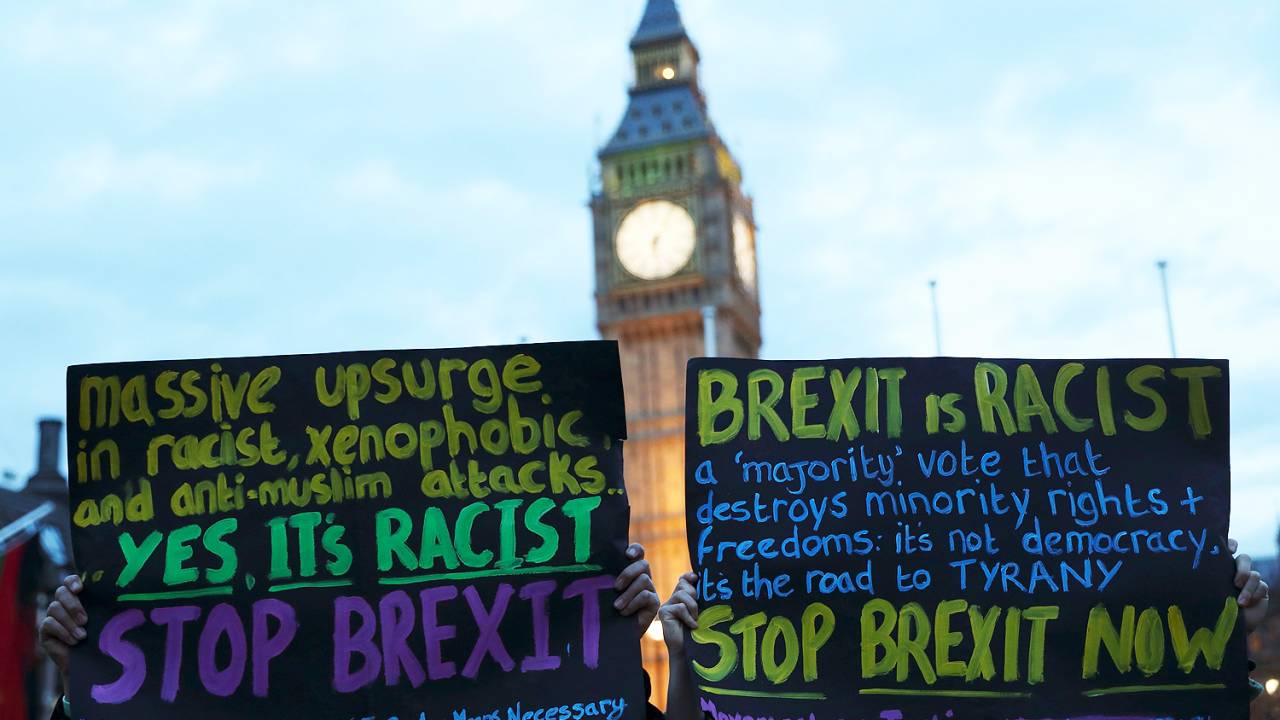 massive upsurge
in racist, xenophobic
and anti-muslim attacks..
YES, IT's RACIST
STOP BREXIT
Necessary
BREXIT is RACIST
a 'majority' vote that
destroys minority rights +
freedoms: it's not democracy,
it's the road to TYRANY
STOP BREXIT NOW